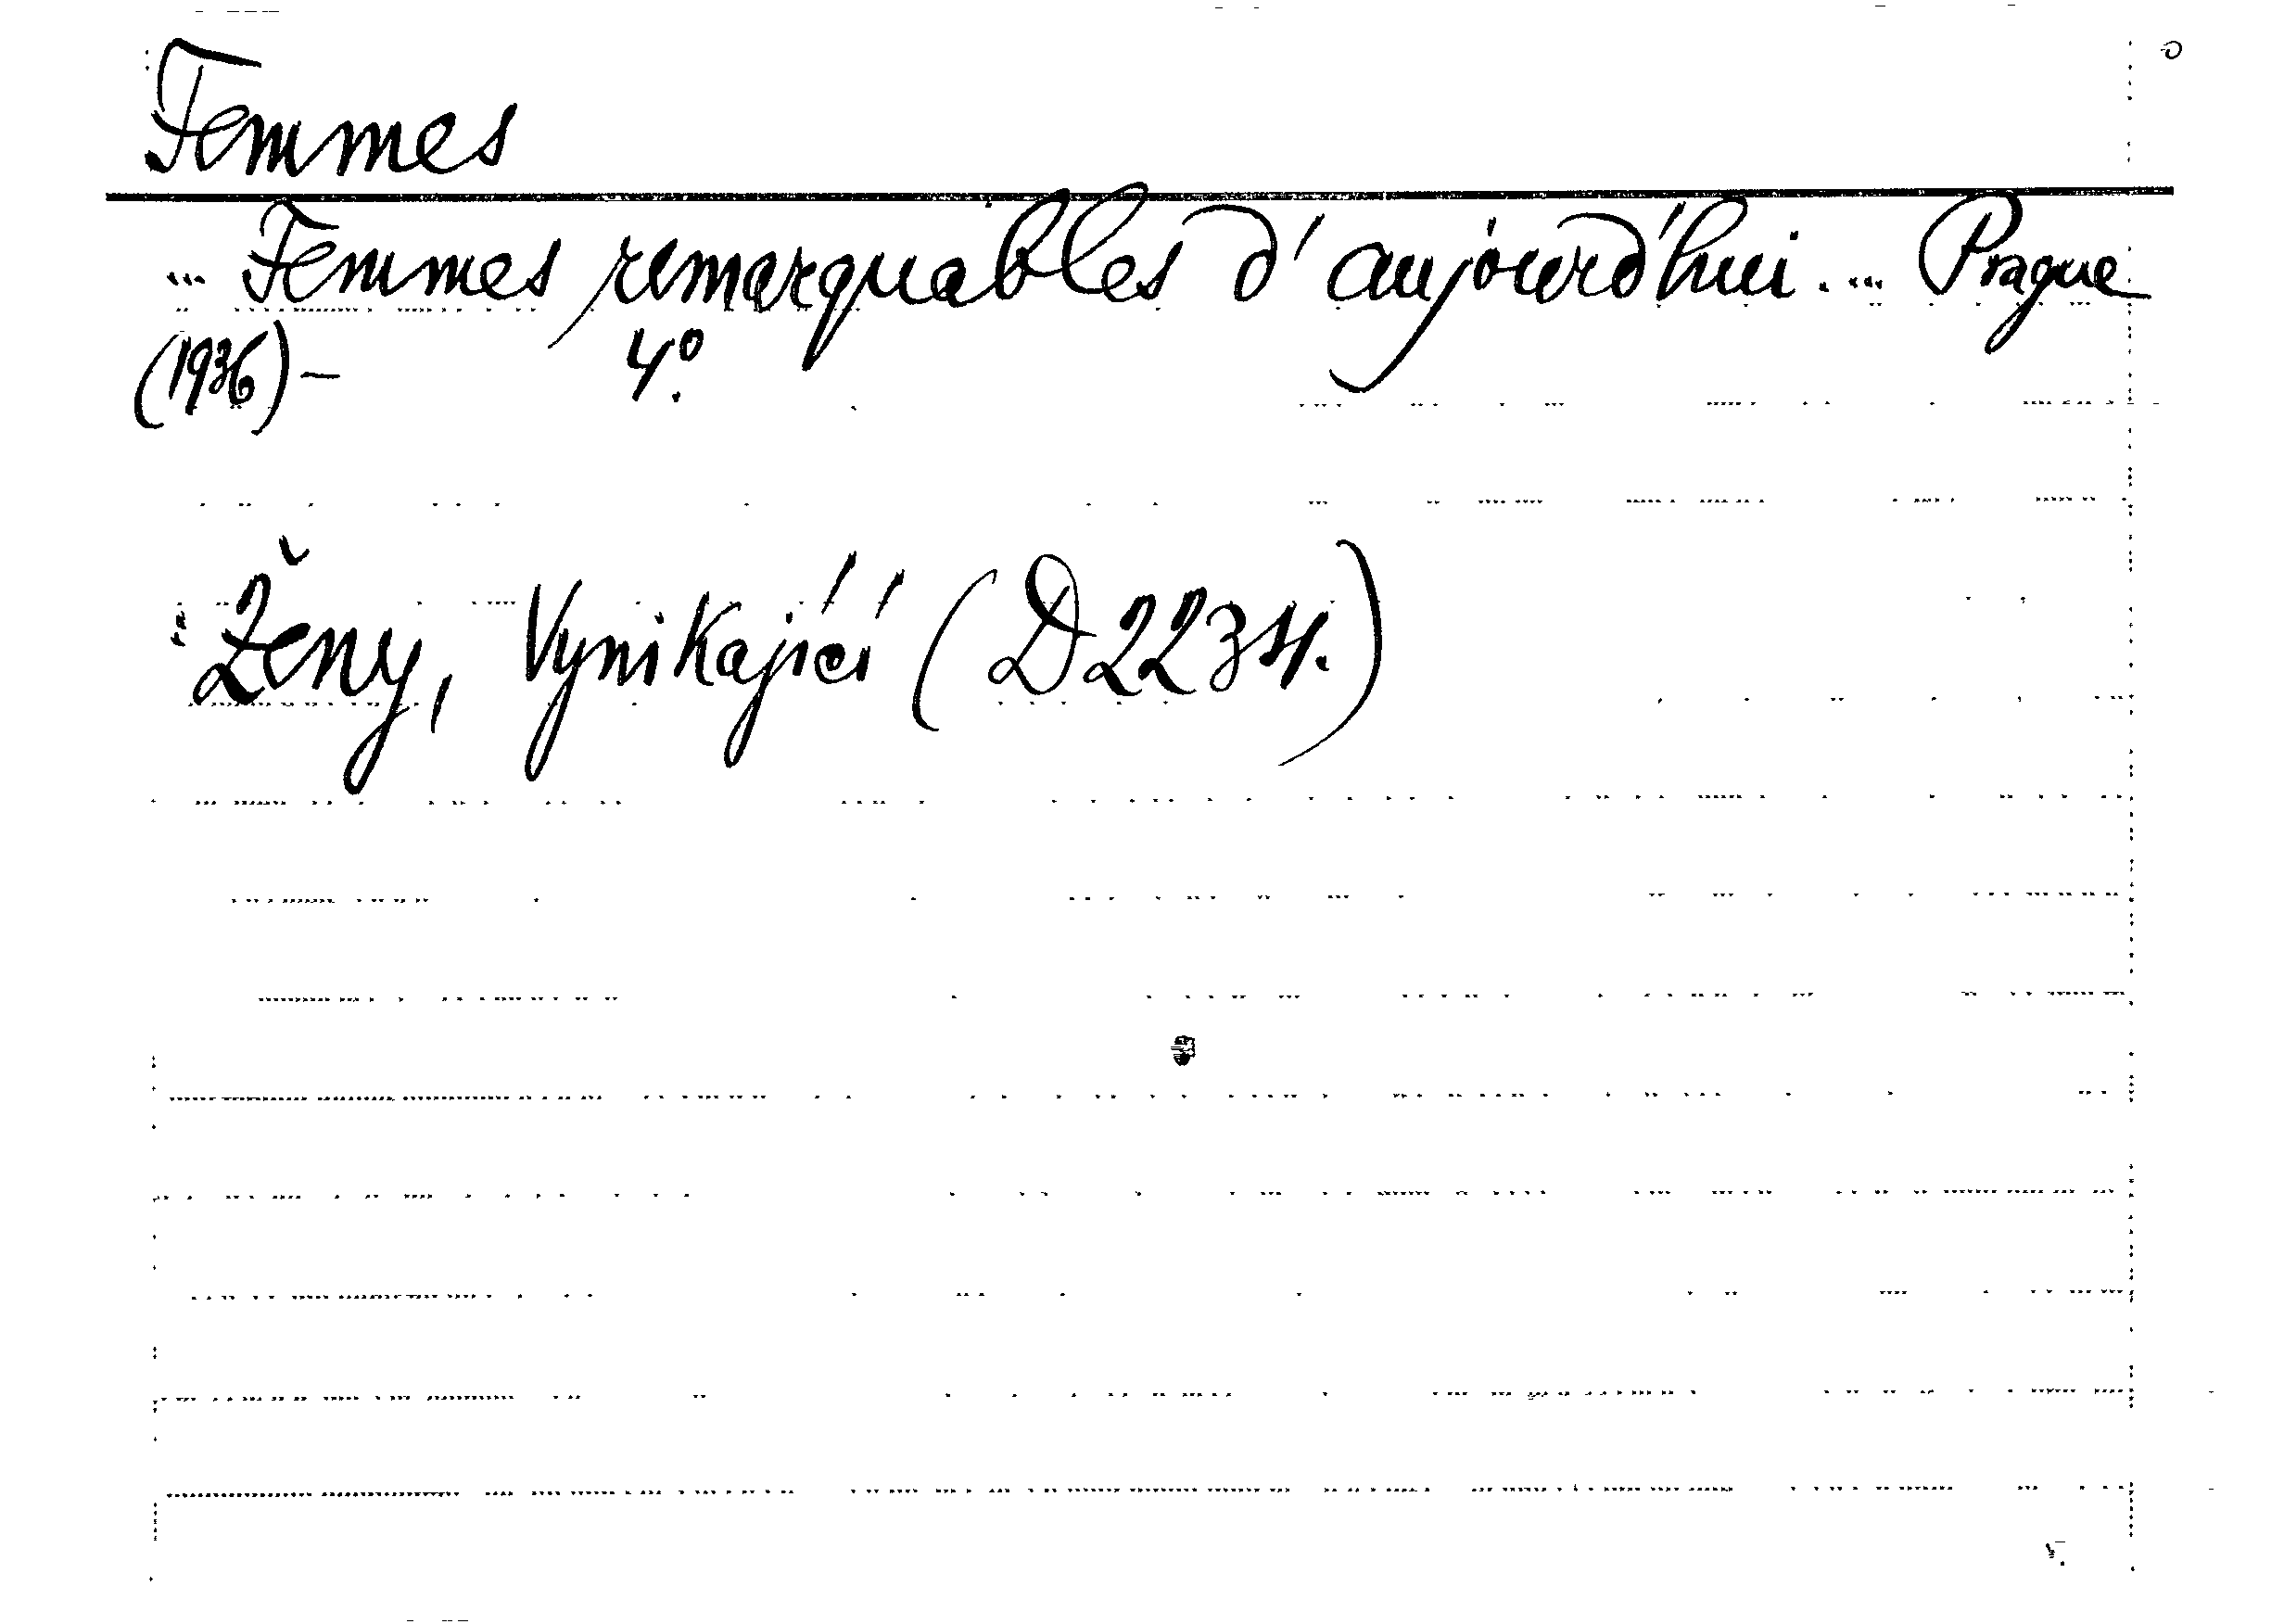 Femmes
... Femmes remarquables d'aujourd'hui.... Prague
(1936)- 4º.
: Ženy, Vynikající (D 2234.)